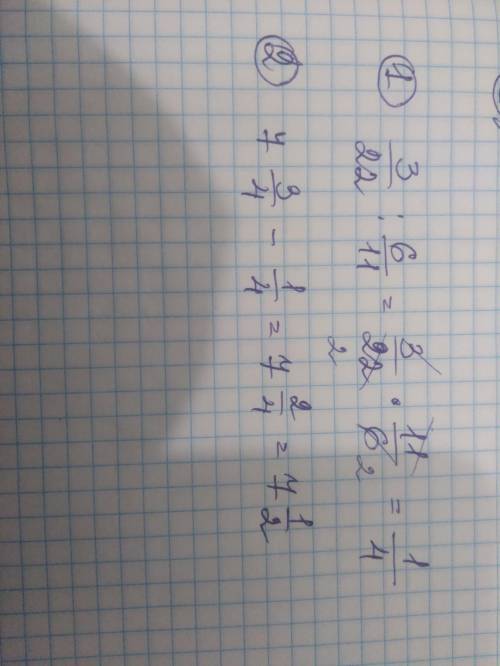 ① 3/22 : 6/11 = 3/22 2 · 11/6 2 = 1/4
② 7 3/4 - 1/4 = 7 2/4 = 7 1/2